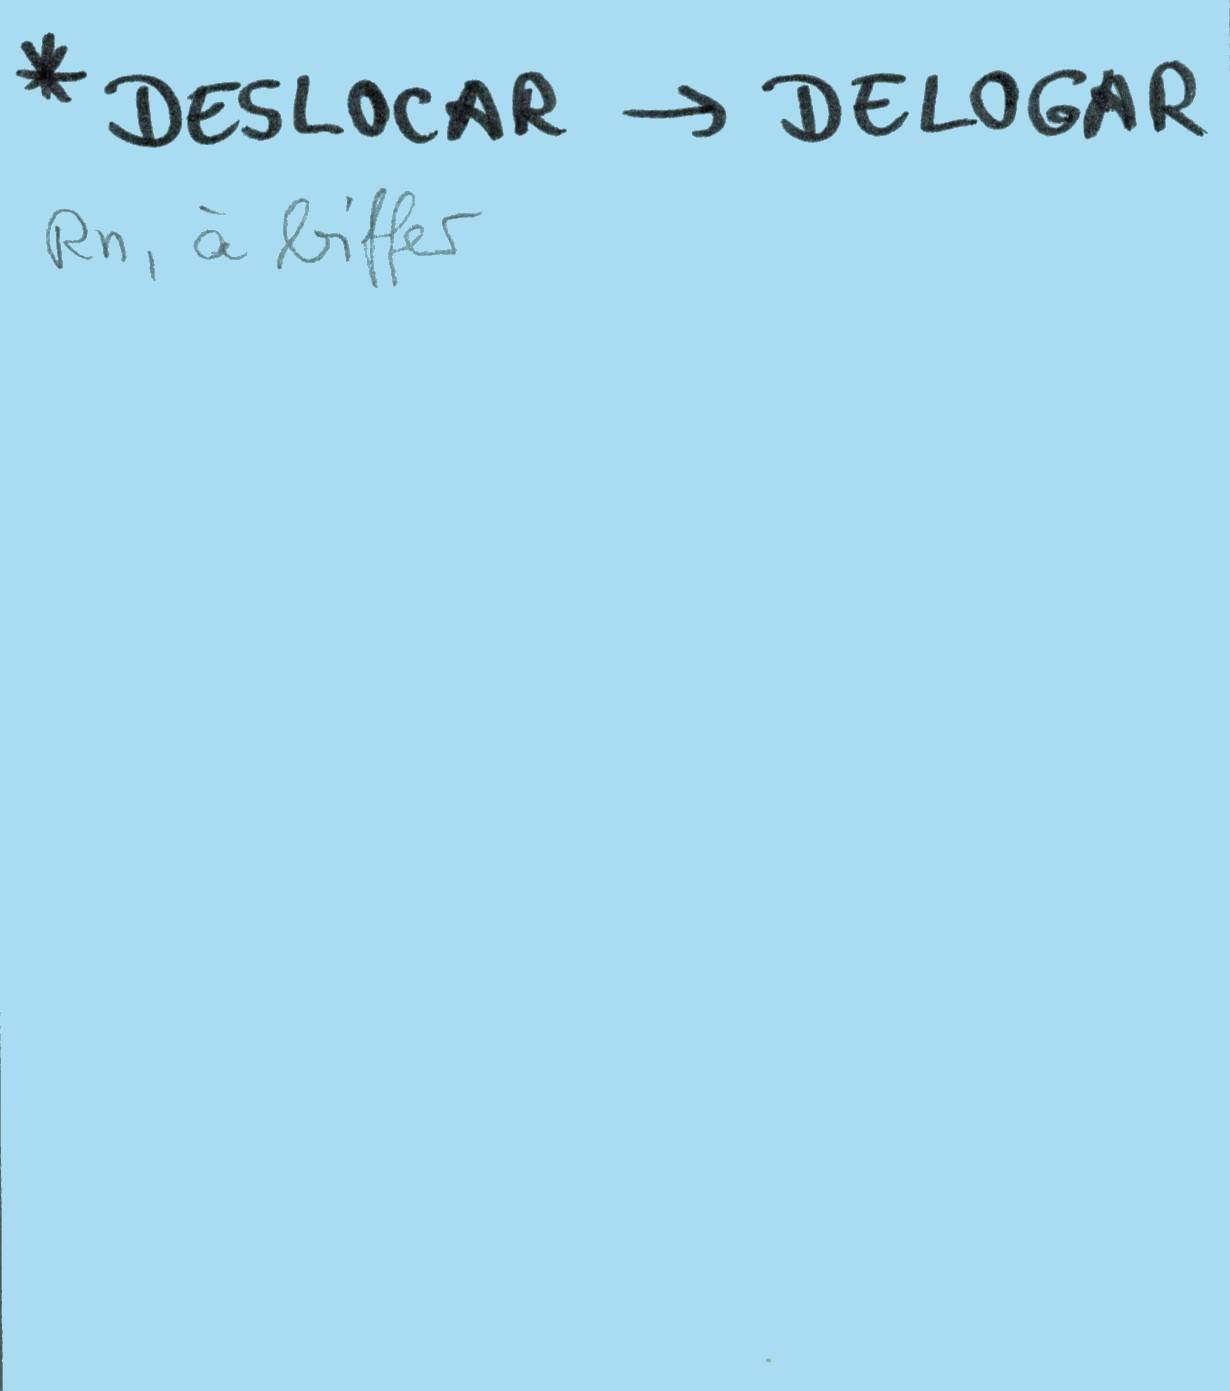 * DESLOCAR → DELOGAR
Rn, à biffer